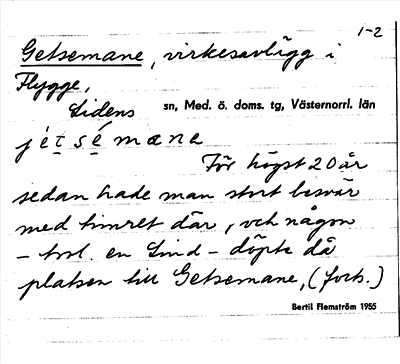 1-2
Getsemane, virkesavlägg i
Flygge,
Lidens sn, Med. ö. doms. tg, Västernorrl. län
jétsé mæna
För högst 20 år
sedan hade man stort besvär
med timret där, och någon
– trol. en Lind – döpte då
platsen till Getsemane, (forts.)
Bertil Flemström 1955